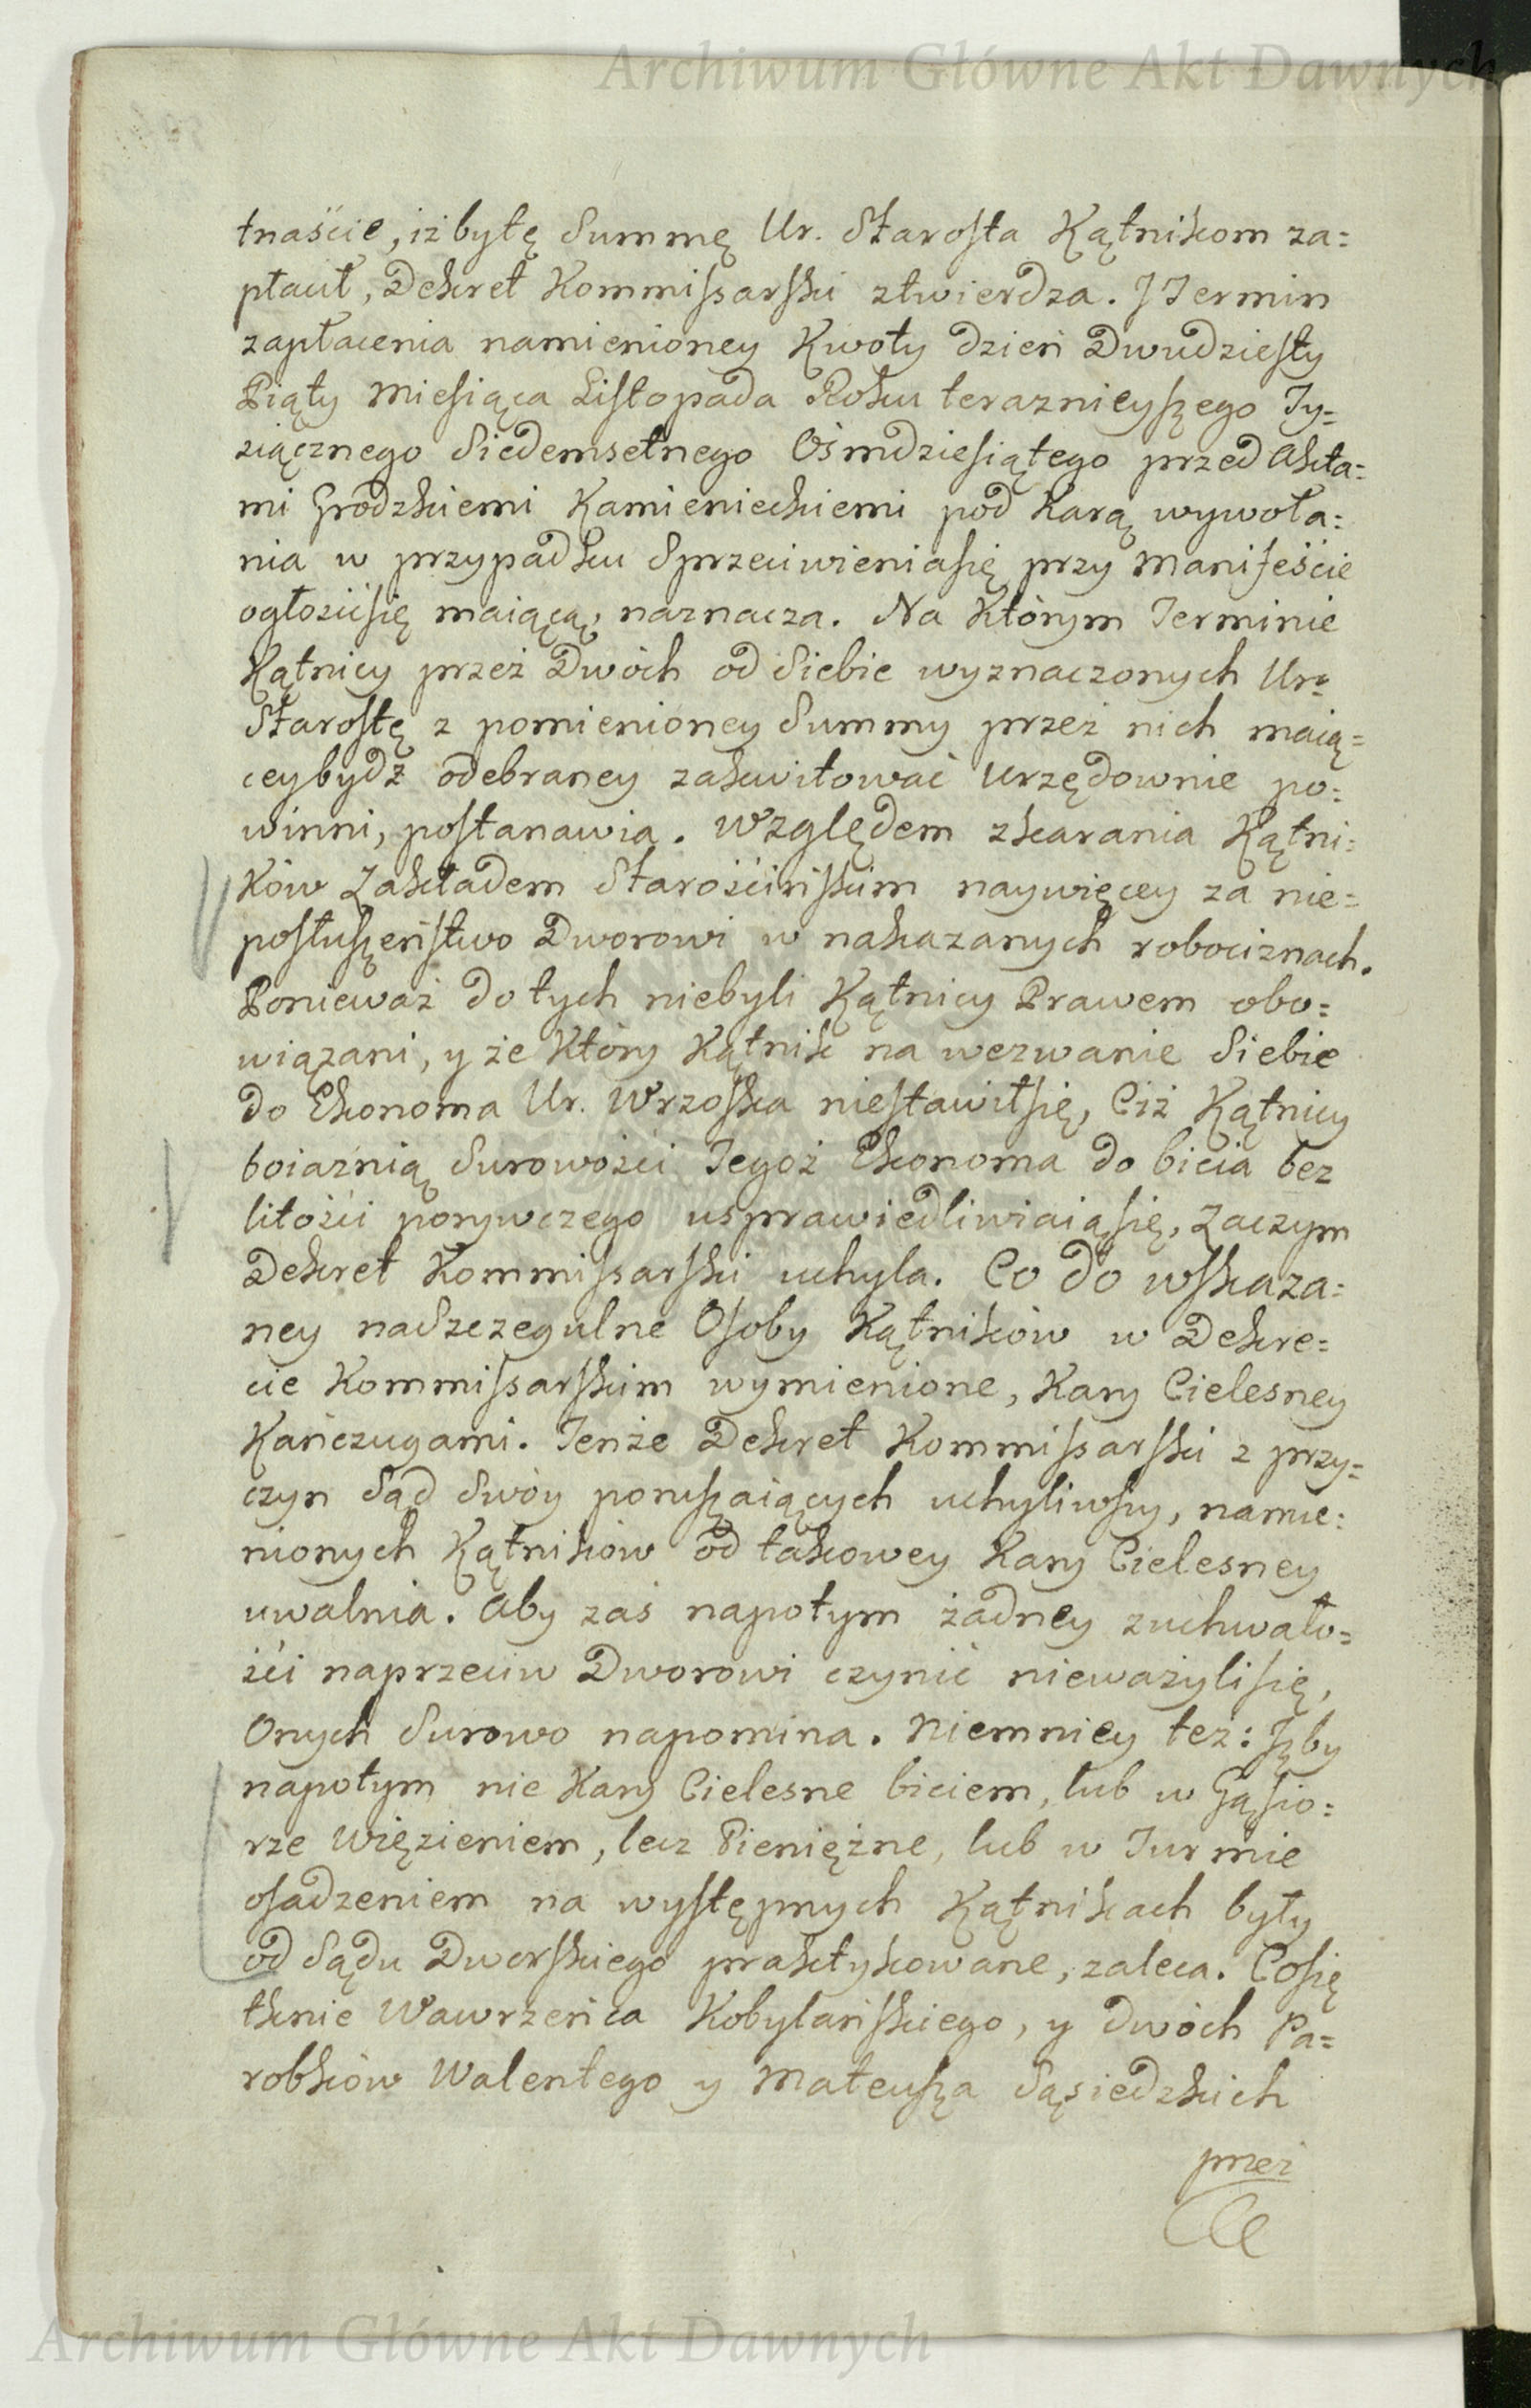 Archiwum Główne Akt Dawnych
tnaście, iżbytę Summę Ur. Starosta Kątnikom za=
płacił, Dekret Kommissarski ztwierdza. J Termin
zapłacenia namienioney Kwoty dzień Dwudziesty
Piąty Miesiąca Listopada Roku teraznieyszego Ty=
siącznego Siedemsetnego Ośmdziesiątego przed Akta=
mi Grodzkiemi Kamienieckiemi pod Karą wywoła=
nia w przypadku Sprzeciwieniasię przy Manifeście
ogłosićsię maiącą, naznacza. Na Którym Terminie
Kątnicy przez Dwóch od Siebie wyznaczonych Ur:
Starostę z pomienioney Summy przez nich maią=
cey bydź odebraney zakwitować Urzędownie po=
winni, postanawia. Względem zkarania Kątni=
Ków Zakładem Starościńskim naywięcey za nie=
posłuszeństwo Dworowi w nakazanych robociznach.
Ponieważ do tych niebyli Kątnicy Prawem obo=
wiązani, y że Który Kątnik na wezwanie Siebie
do Ekonoma Ur. Wrzoska niestawiłsię, Ciż Kątnicy
boiaźnią Surowości Jegoż Ekonoma do bicia bez
litości porywczego usprawiedliwiaiąsię, Zaczym
Dekret Kommissarski uchyla. Co do wskaza=
ney naSzczegulne Osoby Kątników w Dekre=
cie Kommissarskim wymienione, Kary Cielesney
Kańczugami. Tenże Dekret Kommissarski z przy=
czyn Sąd Swóy poruszaiących uchyliwszy, namie=
nionych Kątników od takowey Kary Cielesney
uwalnia. Aby zaś napotym żadney zuchwało=
ści naprzeciw Dworowi czynić nieważylisię,
Onych Surowo napomina. Niemniey też: Jżby
napotym nie Kary Cielesne biciem, lub w Gąsio=
rze więzieniem, lecz Pieniężne, lub w Turmie
osadzeniem na występnych Kątnikach były
od Sądu Dworskiego praktykowane, zaleca. Cosię
tknie Wawrzeńca Kobylańskiego, y dwóch Pa=
robków Walentego y Mateusza Sąsiedzkich
przez
Archiwum Główne Akt Dawnych